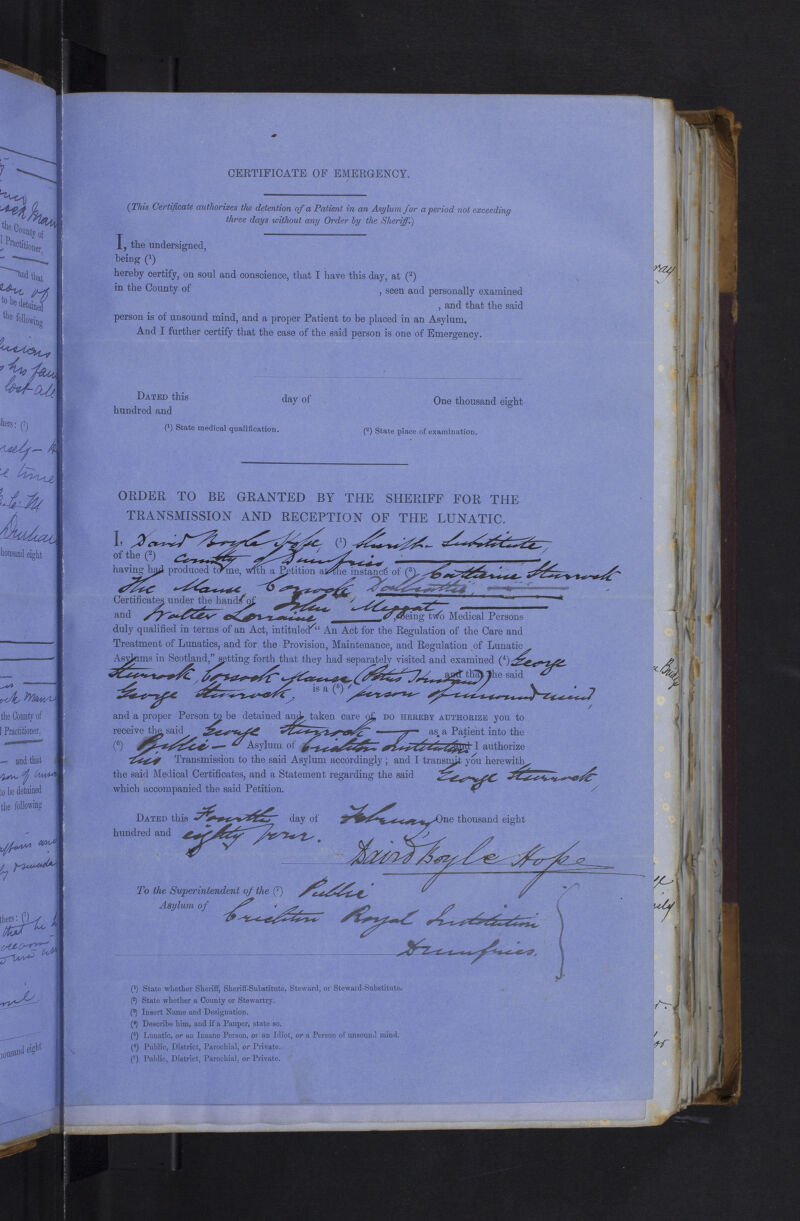 CERTIFICATE OF EMERGENCY.
(This Certificate authorizes the detention of a Patient in an Asylum for a period not exceeding
three days without any Order by the Sheriff.)
I, the undersigned,
being (¹)
hereby certify, on soul and conscience, that I have this day, at (²)
in the County of , seen and personally examined
, and that the said
person is of unsound mind, and a proper Patient to be placed in an Asylum.
And I further certify that the case of the said person is one of Emergency.
DATED this day of One thousand eight
hundred and
(¹) State medical qualification. (²) State place of examination.
ORDER TO BE GRANTED BY THE SHERIFF FOR THE
TRANSMISSION AND RECEPTION OF THE LUNATIC.
I, David Boyle Hope (¹) Sheriff-Substitute,
of the (²) County of Dumfries
having had produced to me, with a Petition at the instance of (³) Catherine Sturrock
The Manse Corsock, Dalbeattie
Certificates under the hands of John Meggat
and Walter Lorraine being two Medical Persons
duly qualified in terms of an Act, intituled "An Act for the Regulation of the Care and
Treatment of Lunatics, and for the Provision, Maintenance, and Regulation of Lunatic
Asylums in Scotland," setting forth that they had separately visited and examined (⁴) George
Sturrock, Corsock Manse, and that the said
George Sturrock, is a (⁵) person of unsound mind,
and a proper Person to be detained and taken care of, DO HEREBY AUTHORIZE you to
receive the said George Sturrock as a Patient into the
(⁶) Public Asylum of Crichton Institution and I authorize
his Transmission to the said Asylum accordingly; and I transmit you herewith
the said Medical Certificates, and a Statement regarding the said George Sturrock,
which accompanied the said Petition.
DATED this Fourth day of February, One thousand eight
hundred and eighty four.
David Boyle Hope
To the Superintendent of the (⁷) Public
Asylum of Crichton Royal Institution
Dumfries.
(¹) State whether Sheriff, Sheriff-Substitute, Steward, or Steward-Substitute.
(²) State whether a County or Stewartry.
(³) Insert Name and Designation.
(⁴) Describe him, and if a Pauper, state so.
(⁵) Lunatic, or an Insane Person, or an Idiot, or a Person of unsound mind.
(⁶) Public, District, Parochial, or Private.
(⁷) Public, District, Parochial, or Private.